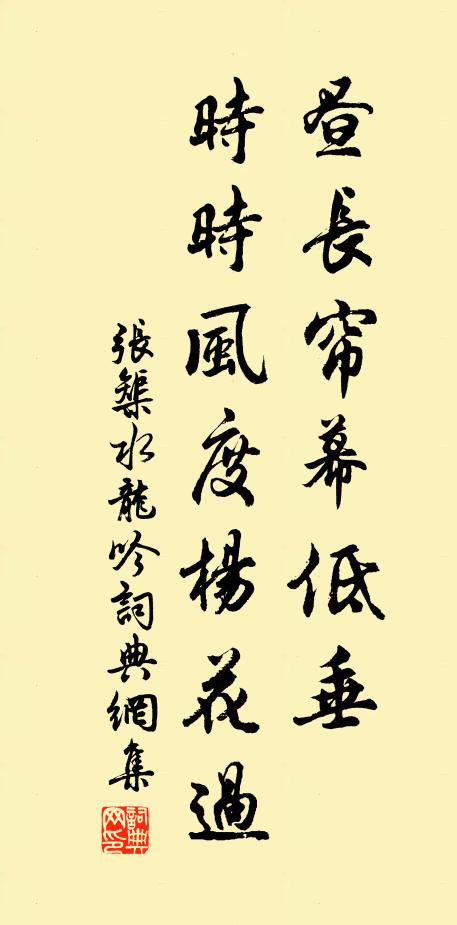 昼長帘幕低垂
時時風度楊花過
張榘水龍吟詞典網集
詞典网印